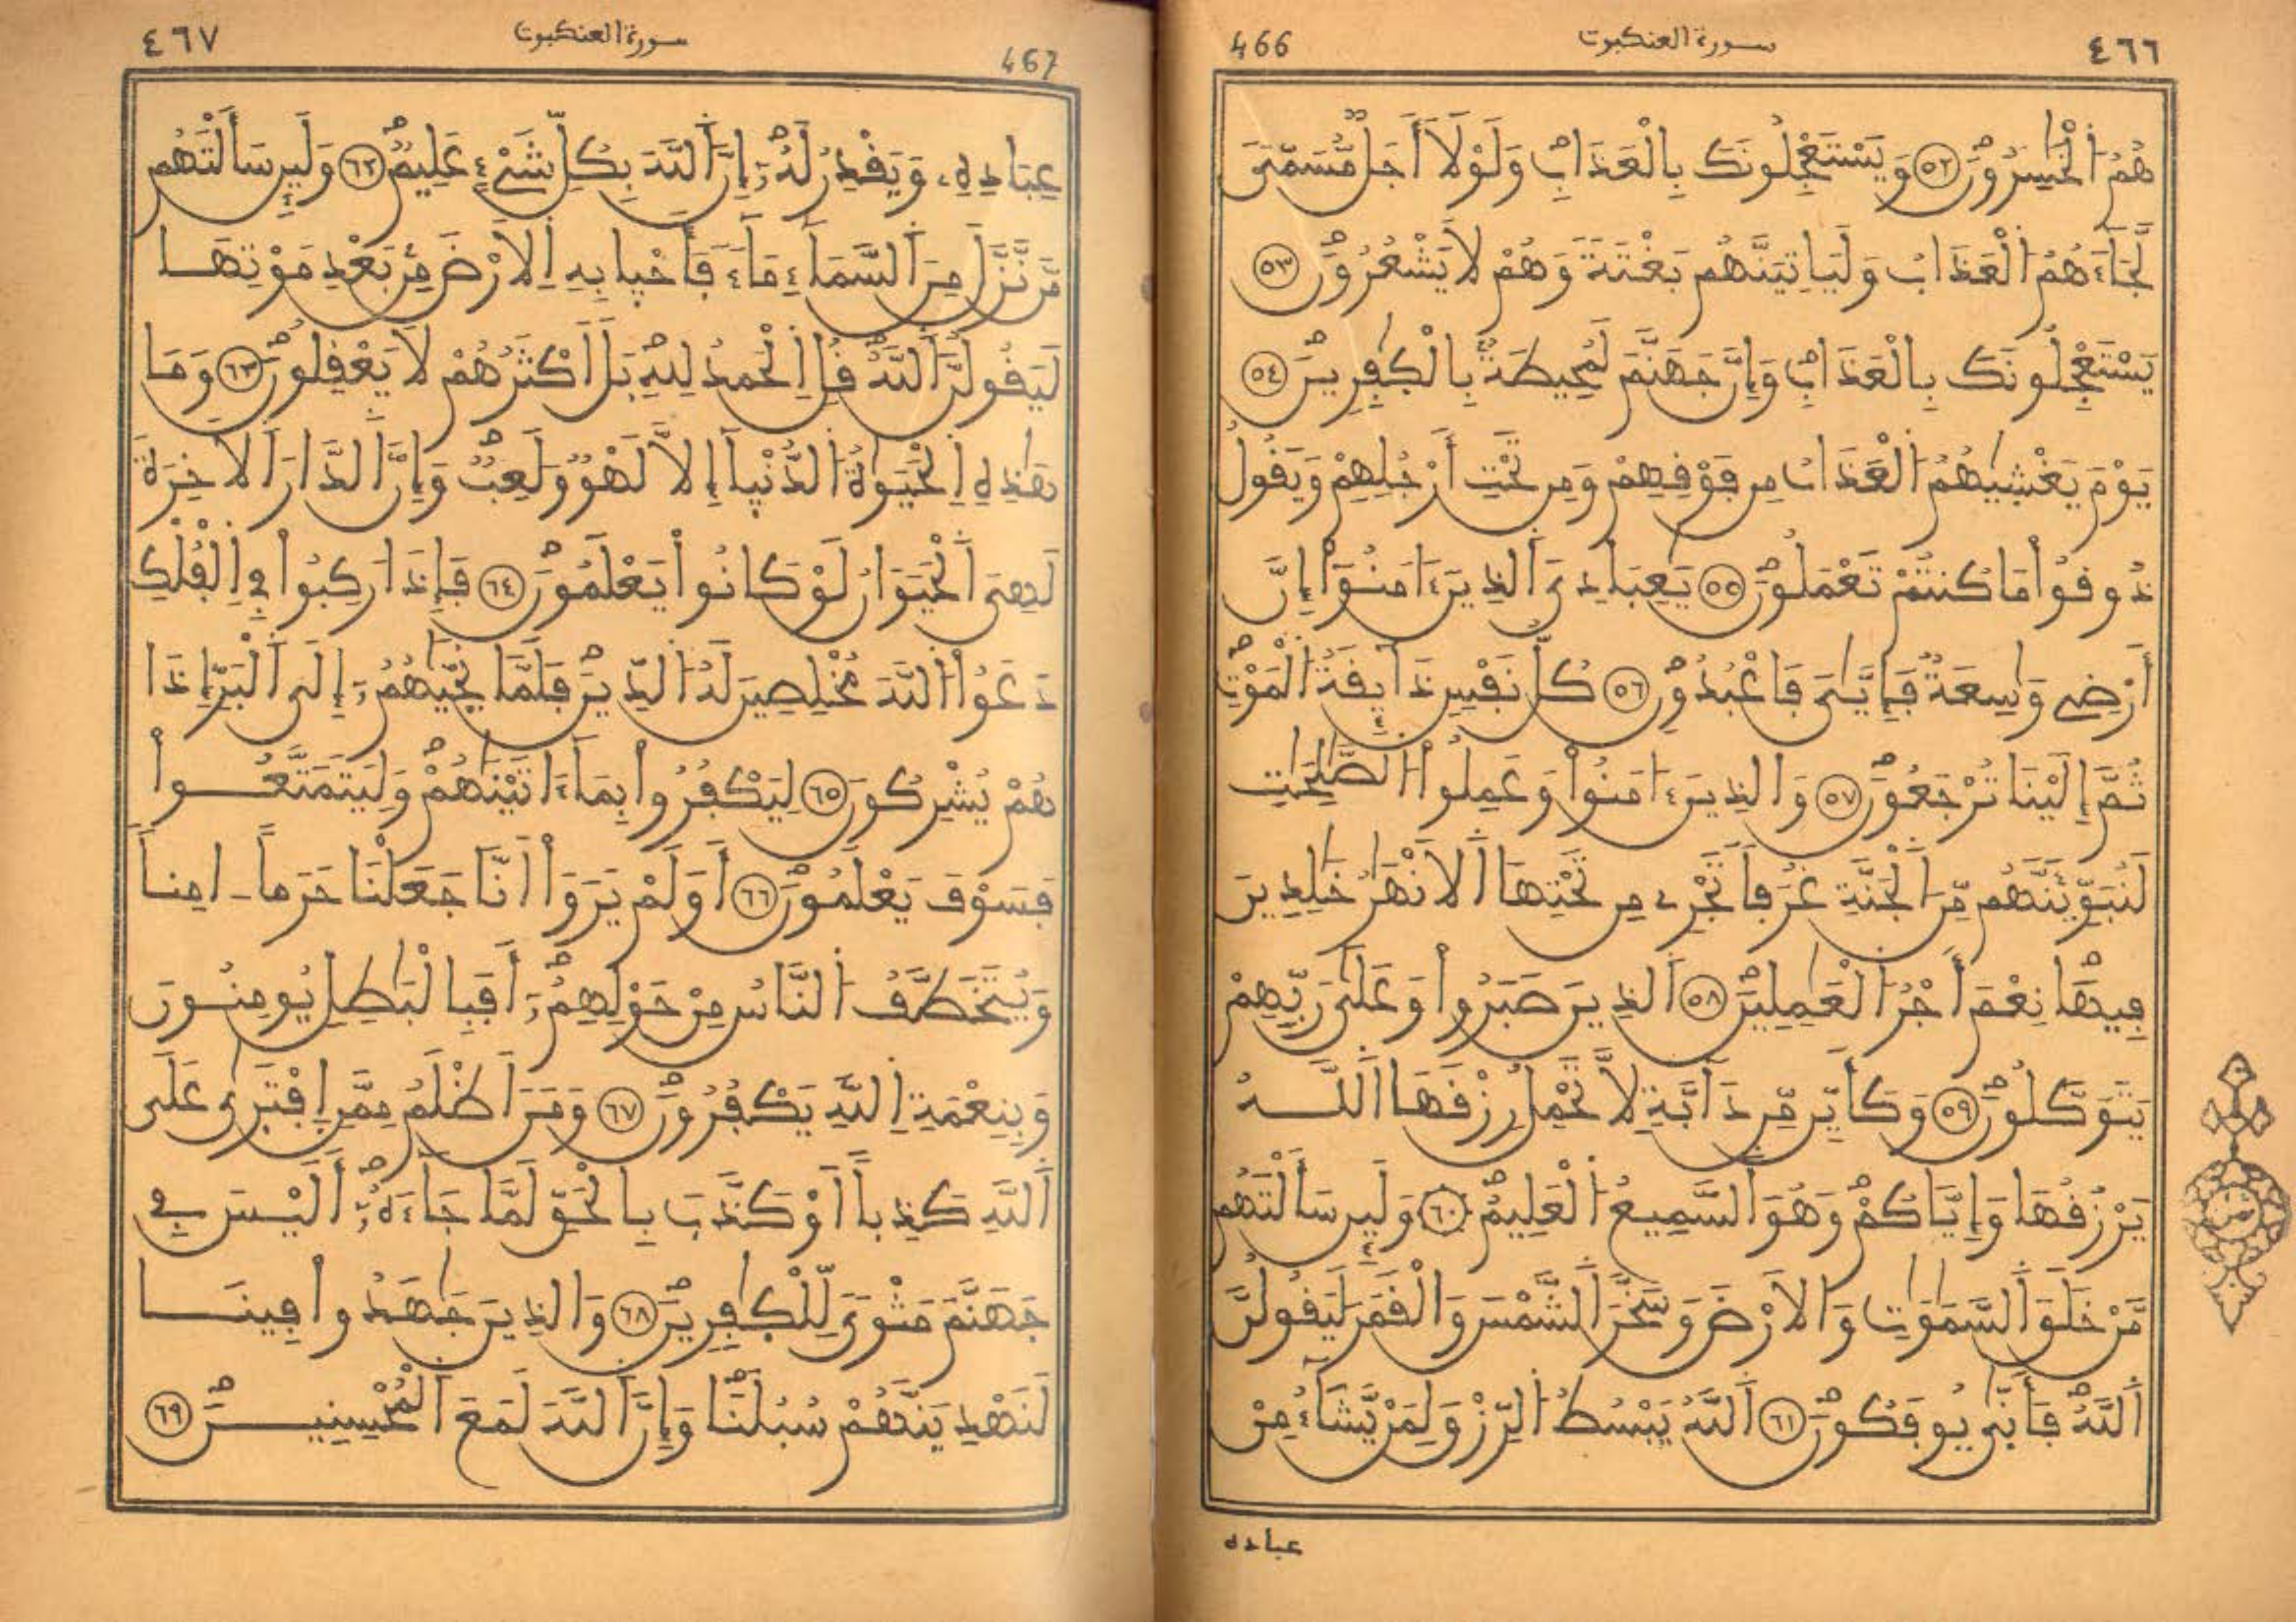 ٤٦٦
سورة العنكبوت
466
هُمُ اُلْخَٰسِرُونَۖ ٥٢ وَيَسْتَعْجِلُونَكَ بِالْعَذَابِۖ وَلَوْلَآ أَجَلٞ مُّسَمّيٗ
لَّجَآءَهُمُ اُلْعَذَابُ وَلَيَاتِيَنَّهُم بَغْتَةٗ وَهُمْ لَا يَشْعُرُونَۖ ٥٣
يَسْتَعْجِلُونَكَ بِالْعَذَابِۖ وَإِنَّ جَهَنَّمَ لَمُحِيطَةُۢ بِالْكٰ۪فِرِينَۖ ٥٤
يَوْمَ يَغْش۪يٰهُمُ اُلْعَذَابُ مِن فَوْقِهِمْ وَمِن تَحْتِ أَرْجُلِهِمْ وَيَقُولُ
ذُوقُواْ مَا كُنتُمْ تَعْمَلُونَۖ ٥٥ يَٰعِبَادِيَ اَلذِينَ ءَامَنُوٓاْ إِنَّ
أَرْضِے وَٰسِعَةٞ فَإِيَّٰيَ فَاعْبُدُونِۖ ٥٦ كُلُّ نَفْسٖ ذَآئِقَةُ اُلْمَوْتِۖ
ثُمَّ إِلَيْنَا تُرْجَعُونَۖ ٥٧ وَالذِينَ ءَامَنُواْ وَعَمِلُواْ اُلصَّٰلِحَٰتِ
لَنُبَوِّئَنَّهُم مِّنَ اَلْجَنَّةِ غُرَفاٗ تَجْرِے مِن تَحْتِهَا اَلَانْهَٰرُ خَٰلِدِينَ
فِيهَاۖ نِعْمَ أَجْرُ اُلْعَٰمِلِينَۖ ٥٨ اَلذِينَ صَبَرُواْ وَعَلَىٰ رَبِّهِمْ
يَتَوَكَّلُونَۖ ٥٩ وَكَأَيِّن مِّن دَآبَّةٖ لَّا تَحْمِلُ رِزْقَهَا اَللَّهُ
يَرْزُقُهَا وَإِيَّاكُمْۖ وَهُوَ اَلسَّمِيعُ اُلْعَلِيمُۖ ٦٠ وَلَئِن سَأَلْتَهُم
مَّنْ خَلَقَ اَلسَّمَٰوَٰتِ وَالَارْضَ وَسَخَّرَ اَلشَّمْسَ وَالْقَمَرَ لَيَقُولُنَّ
اَللَّهُۖ فَأَنّ۪يٰ يُوفَكُونَۖ ٦١ اَللَّهُ يَبْسُطُ اُلرِّزْقَ لِمَنْ يَّشَآءُ مِنْ
عباده
٤٦٧
سورة العنكبوت
467
عِبَادِهِۦ وَيَقْدِرُ لَهُۥٓۖ إِنَّ اَللَّهَ بِكُلِّ شَےْءٍ عَلِيمٞۖ ٦٢ وَلَئِن سَأَلْتَهُم
مَّن نَّزَّلَ مِنَ اَلسَّمَآءِ مَآءٗ فَأَحْي۪ا بِهِ اِلَارْضَ مِنۢ بَعْدِ مَوْتِهَا
لَيَقُولُنَّ اَللَّهُۖ قُلِ اِلْحَمْدُ لِلهِۖ بَلَ اَكْثَرُهُمْ لَا يَعْقِلُونَۖ ٦٣ وَمَا
هَٰذِهِ اِلْحَيَوٰةُ اُلدُّنْي۪آ إِلَّا لَهْوٞ وَلَعِبٞۖ وَإِنَّ اَلدَّارَ اَلَاخِرَةَ
لَهِيَ اَلْحَيَوَانُ لَوْ كَانُواْ يَعْلَمُونَۖ ٦٤ فَإِذَا رَكِبُواْ فِے اِلْفُلْكِ
دَعَوُاْ اُللَّهَ مُخْلِصِينَ لَهُ اُلدِّينَۖ فَلَمَّا نَجّ۪يٰهُمُۥٓ إِلَى اَلْبَرِّ إِذَا
هُمْ يُشْرِكُونَ ٦٥ لِيَكْفُرُواْ بِمَآ ءَاتَيْنَٰهُمْۖ وَلِيَتَمَتَّعُواْ
فَسَوْفَ يَعْلَمُونَۖ ٦٦ أَوَلَمْ يَرَوَاْ اَنَّا جَعَلْنَا حَرَماً ـ امِناٗ
وَيُتَخَطَّفُ اُلنَّاسُ مِنْ حَوْلِهِمُۥٓۖ أَفَبِالْبَٰطِلِ يُومِنُونَ
وَبِنِعْمَةِ اِللَّهِ يَكْفُرُونَۖ ٦٧ وَمَنَ اَظْلَمُ مِمَّنِ اِفْتَر۪يٰ عَلَى
اَللَّهِ كَذِباً اَوْ كَذَّبَ بِالْحَقِّ لَمَّا جَآءَهُۥٓۖ أَلَيْسَ فِے
جَهَنَّمَ مَثْوىٗ لِّلْكٰ۪فِرِينَۖ ٦٨ وَالذِينَ جَٰهَدُواْ فِينَا
لَنَهْدِيَنَّهُمْ سُبُلَنَاۖ وَإِنَّ اَللَّهَ لَمَعَ اَلْمُحْسِنِينَۖ ٦٩